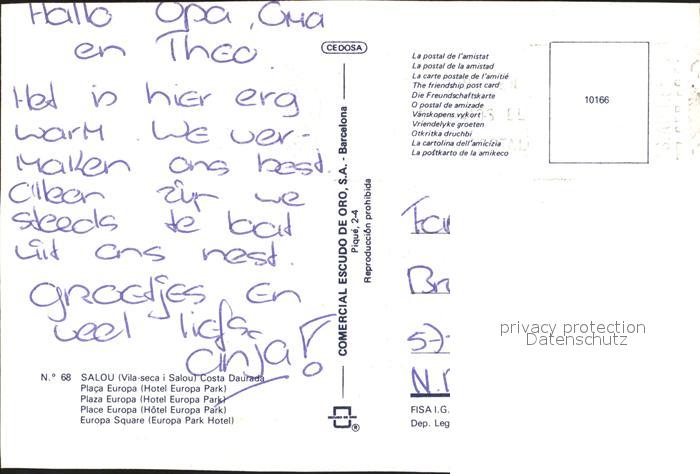 Hallo Opa, Oma
en Theo.
Het is hier erg
warm. We ver-
maken ons best.
Alleen zijn we
steeds te laat
uit ons nest.
Groetjes en
veel liefs.
Anja!
Nº 68 SALOU (Vila-seca i Salou) Costa Daurada
Plaça Europa (Hotel Europa Park)
Plaza Europa (Hotel Europa Park)
Place Europa (Hôtel Europa Park)
Europa Square (Europa Park Hotel)
CEDOSA
COMERCIAL ESCUDO DE ORO, S.A. - Barcelona
Piqué, 2-4
Reproducción prohibida
®
La postal de l'amistat
La postal de la amistad
La carte postale de l'amitié
The friendship post card
Die Freundschaftskarte
O postal de amizade
Vänskopens vykort
Vriendelyke groeten
Otkritka druchbi
La cartolina dell'amicizia
La poŝtkarto de la amikeco
10166
Fa
Br
57
N.
privacy protection
Datenschutz
FISA I.G.
Dep. Leg